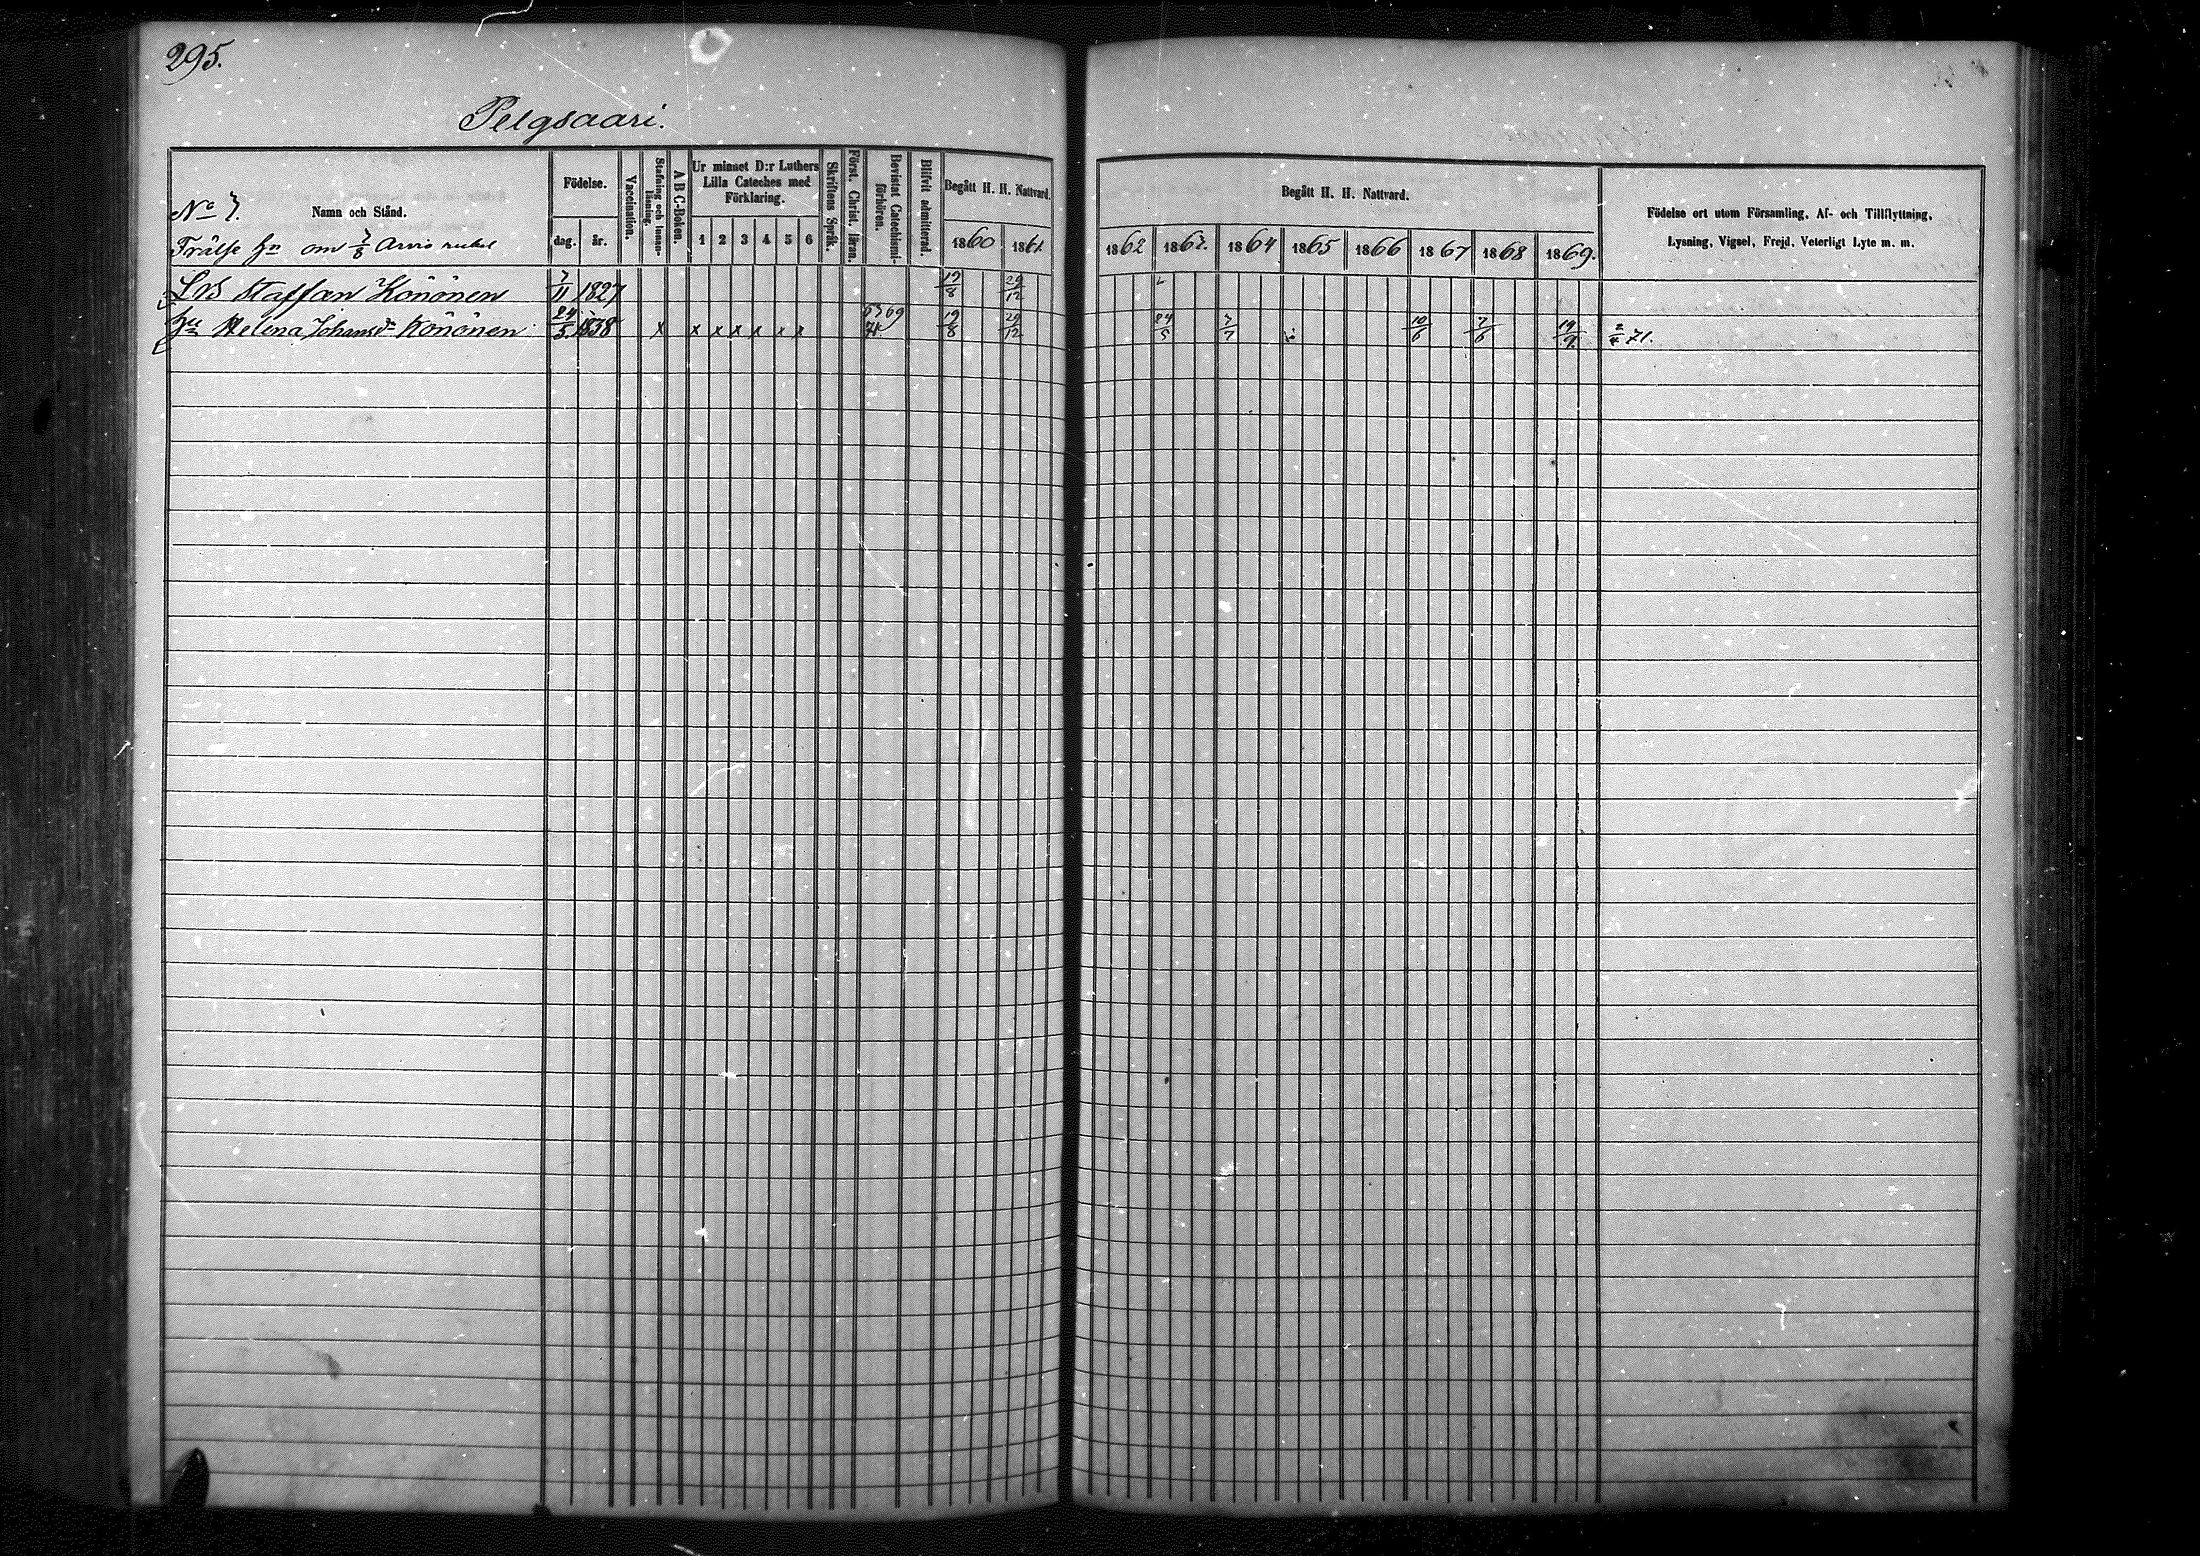 295.
Pelgsaari.
No 7.
Namn och Stånd.
Födelse.
dag. år.
Vaccination.
Stafning och Innanläsning.
A B C-Boken.
Ur minnet D:r Luthers Lilla Cateches med Förklaring.
1 2 3 4 5 6
Skriftens Språk.
Först. Christ. läran.
Bevistat Catechismiförhören.
Blifvit admitterad.
Begått H. H. Nattvard.
1860 1861.
Begått H. H. Nattvard.
1862 1863. 1864 1865 1866 1867 1868 1869.
Födelse ort utom Församling, Af- och Tillflyttning,
Lysning, Vigsel, Frejd, Veterligt Lyte m. m.
Frälse hn om 7/8 Arvio rubel
Staffan Könönen 7/11 1827 19/8 29/12
Hu Helena Johansdr Könönen 24/5 1838 x x x x x x x 63 69 71 19/8 29/12 24/5 7/7 10/6 7/6 19/9 2/4 71.